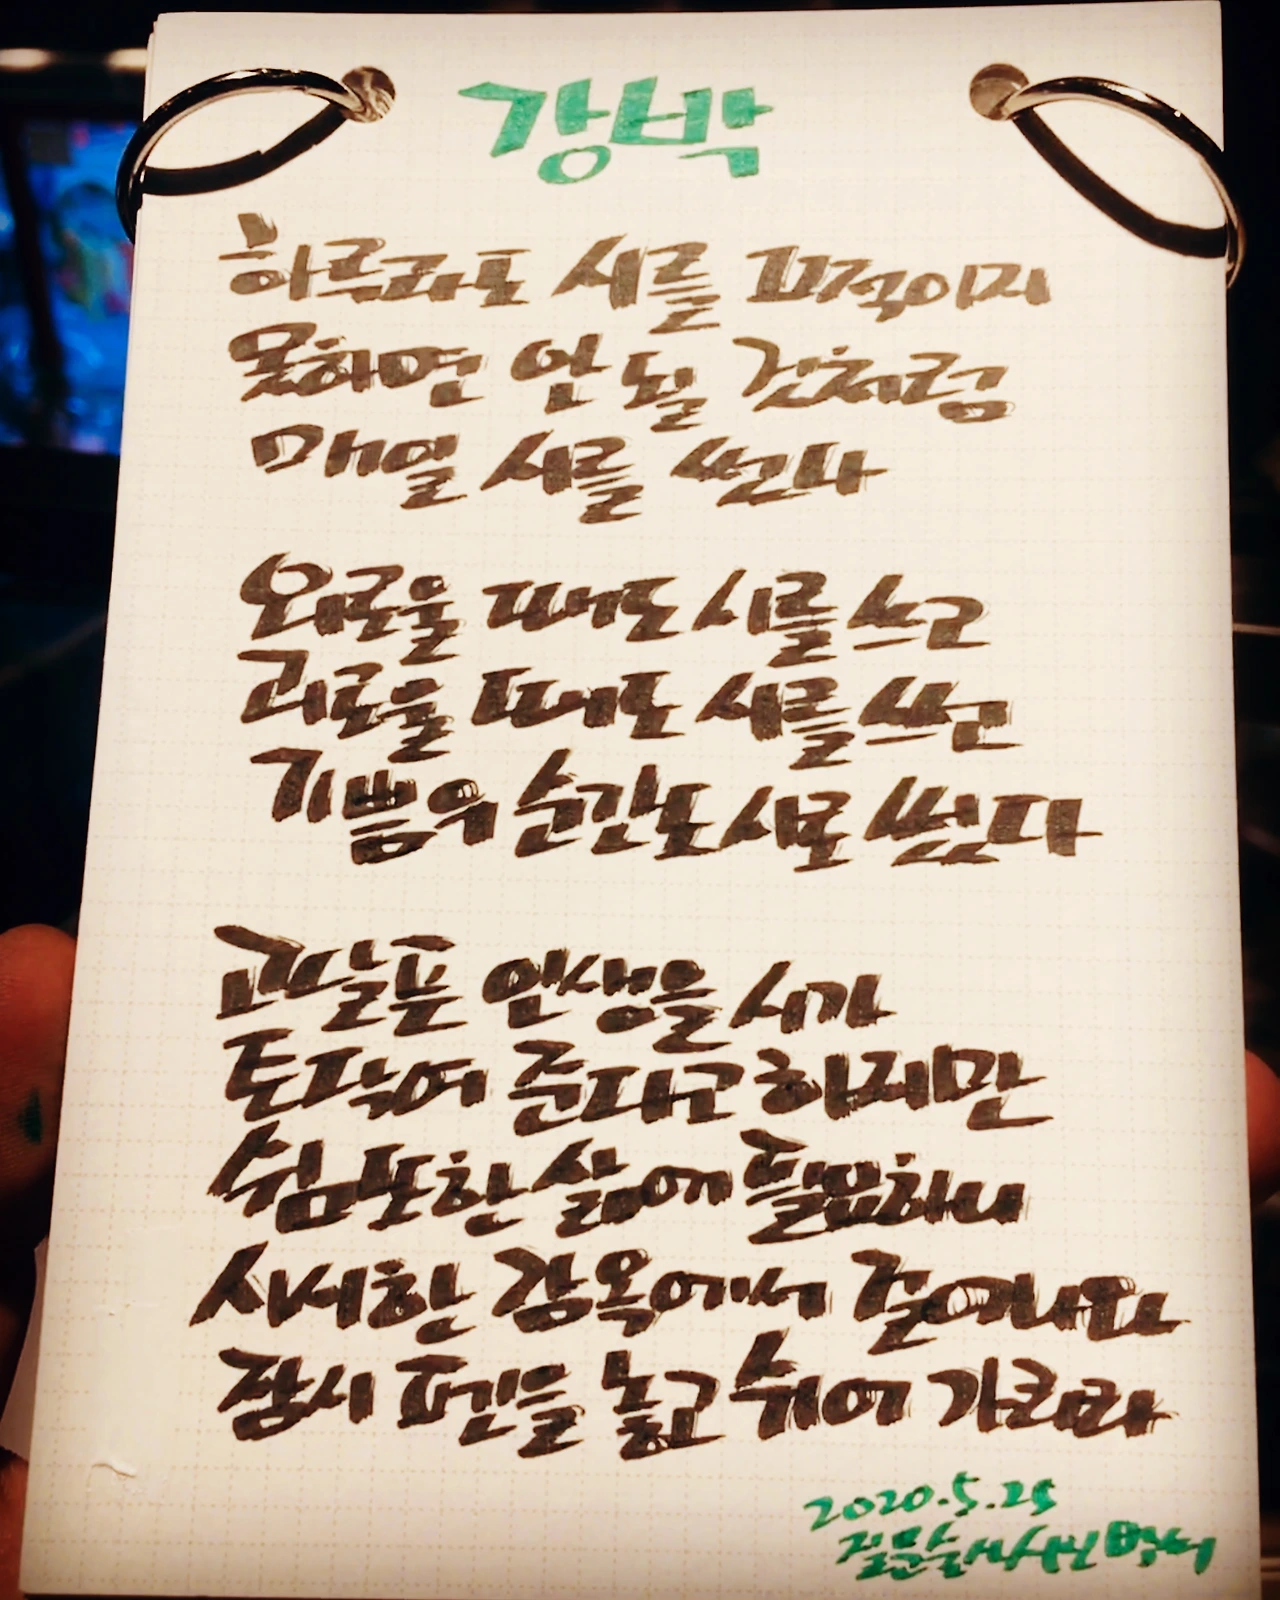 강박
하루라도 시를 끄적이지
못하면 안 될 것처럼
매일 시를 쓴다
외로울 때도 시를 쓰고
괴로울 때도 시를 쓰고
기쁨의 순간도 시로 썼다
고달픈 인생을 시가
토닥여 준다고 하지만
쉼 또한 삶에 필요하니
사세한 감옥에서 걸어나와
잠시 펜을 놓고 쉬어 가리라
2020.5.25
질문술사 시인